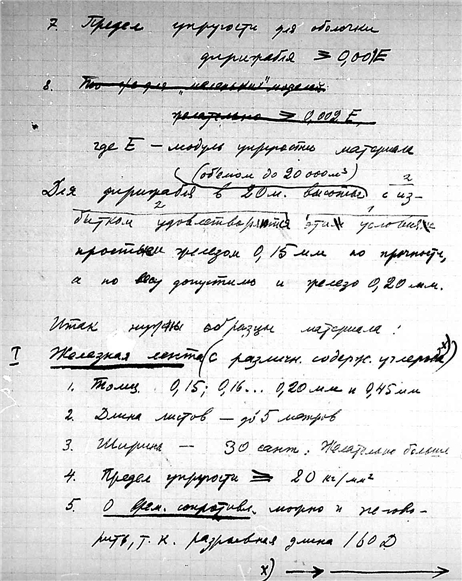 7. Предел упругости для оболочки
дирижабля ≥ 0,001E
8. То же для "маленьких" моделей
желательно ≥ 0,002 E,
где E — модуль упругости материала
(объемом до 20000м³)
Для дирижабля в 20м. высоты с из-
бытком удовлетворяются эти условия
простым железом 0,15 мм по прочности,
а по весу допустимо и железо 0,20 мм.
Итак нужны образцы материала:
I Железная лента (с различн. содерж. углерода x))
1. Толщ. 0,15; 0,16... 0,20 мм и 0,45 мм
2. Длина листов — до 5 метров
3. Ширина — 30 сант. Желательно больше
4. Предел упругости ≥ 20 кг/мм²
5. О врем. сопротивл. можно и не гово-
рить, т. к. разрывная длина
x)